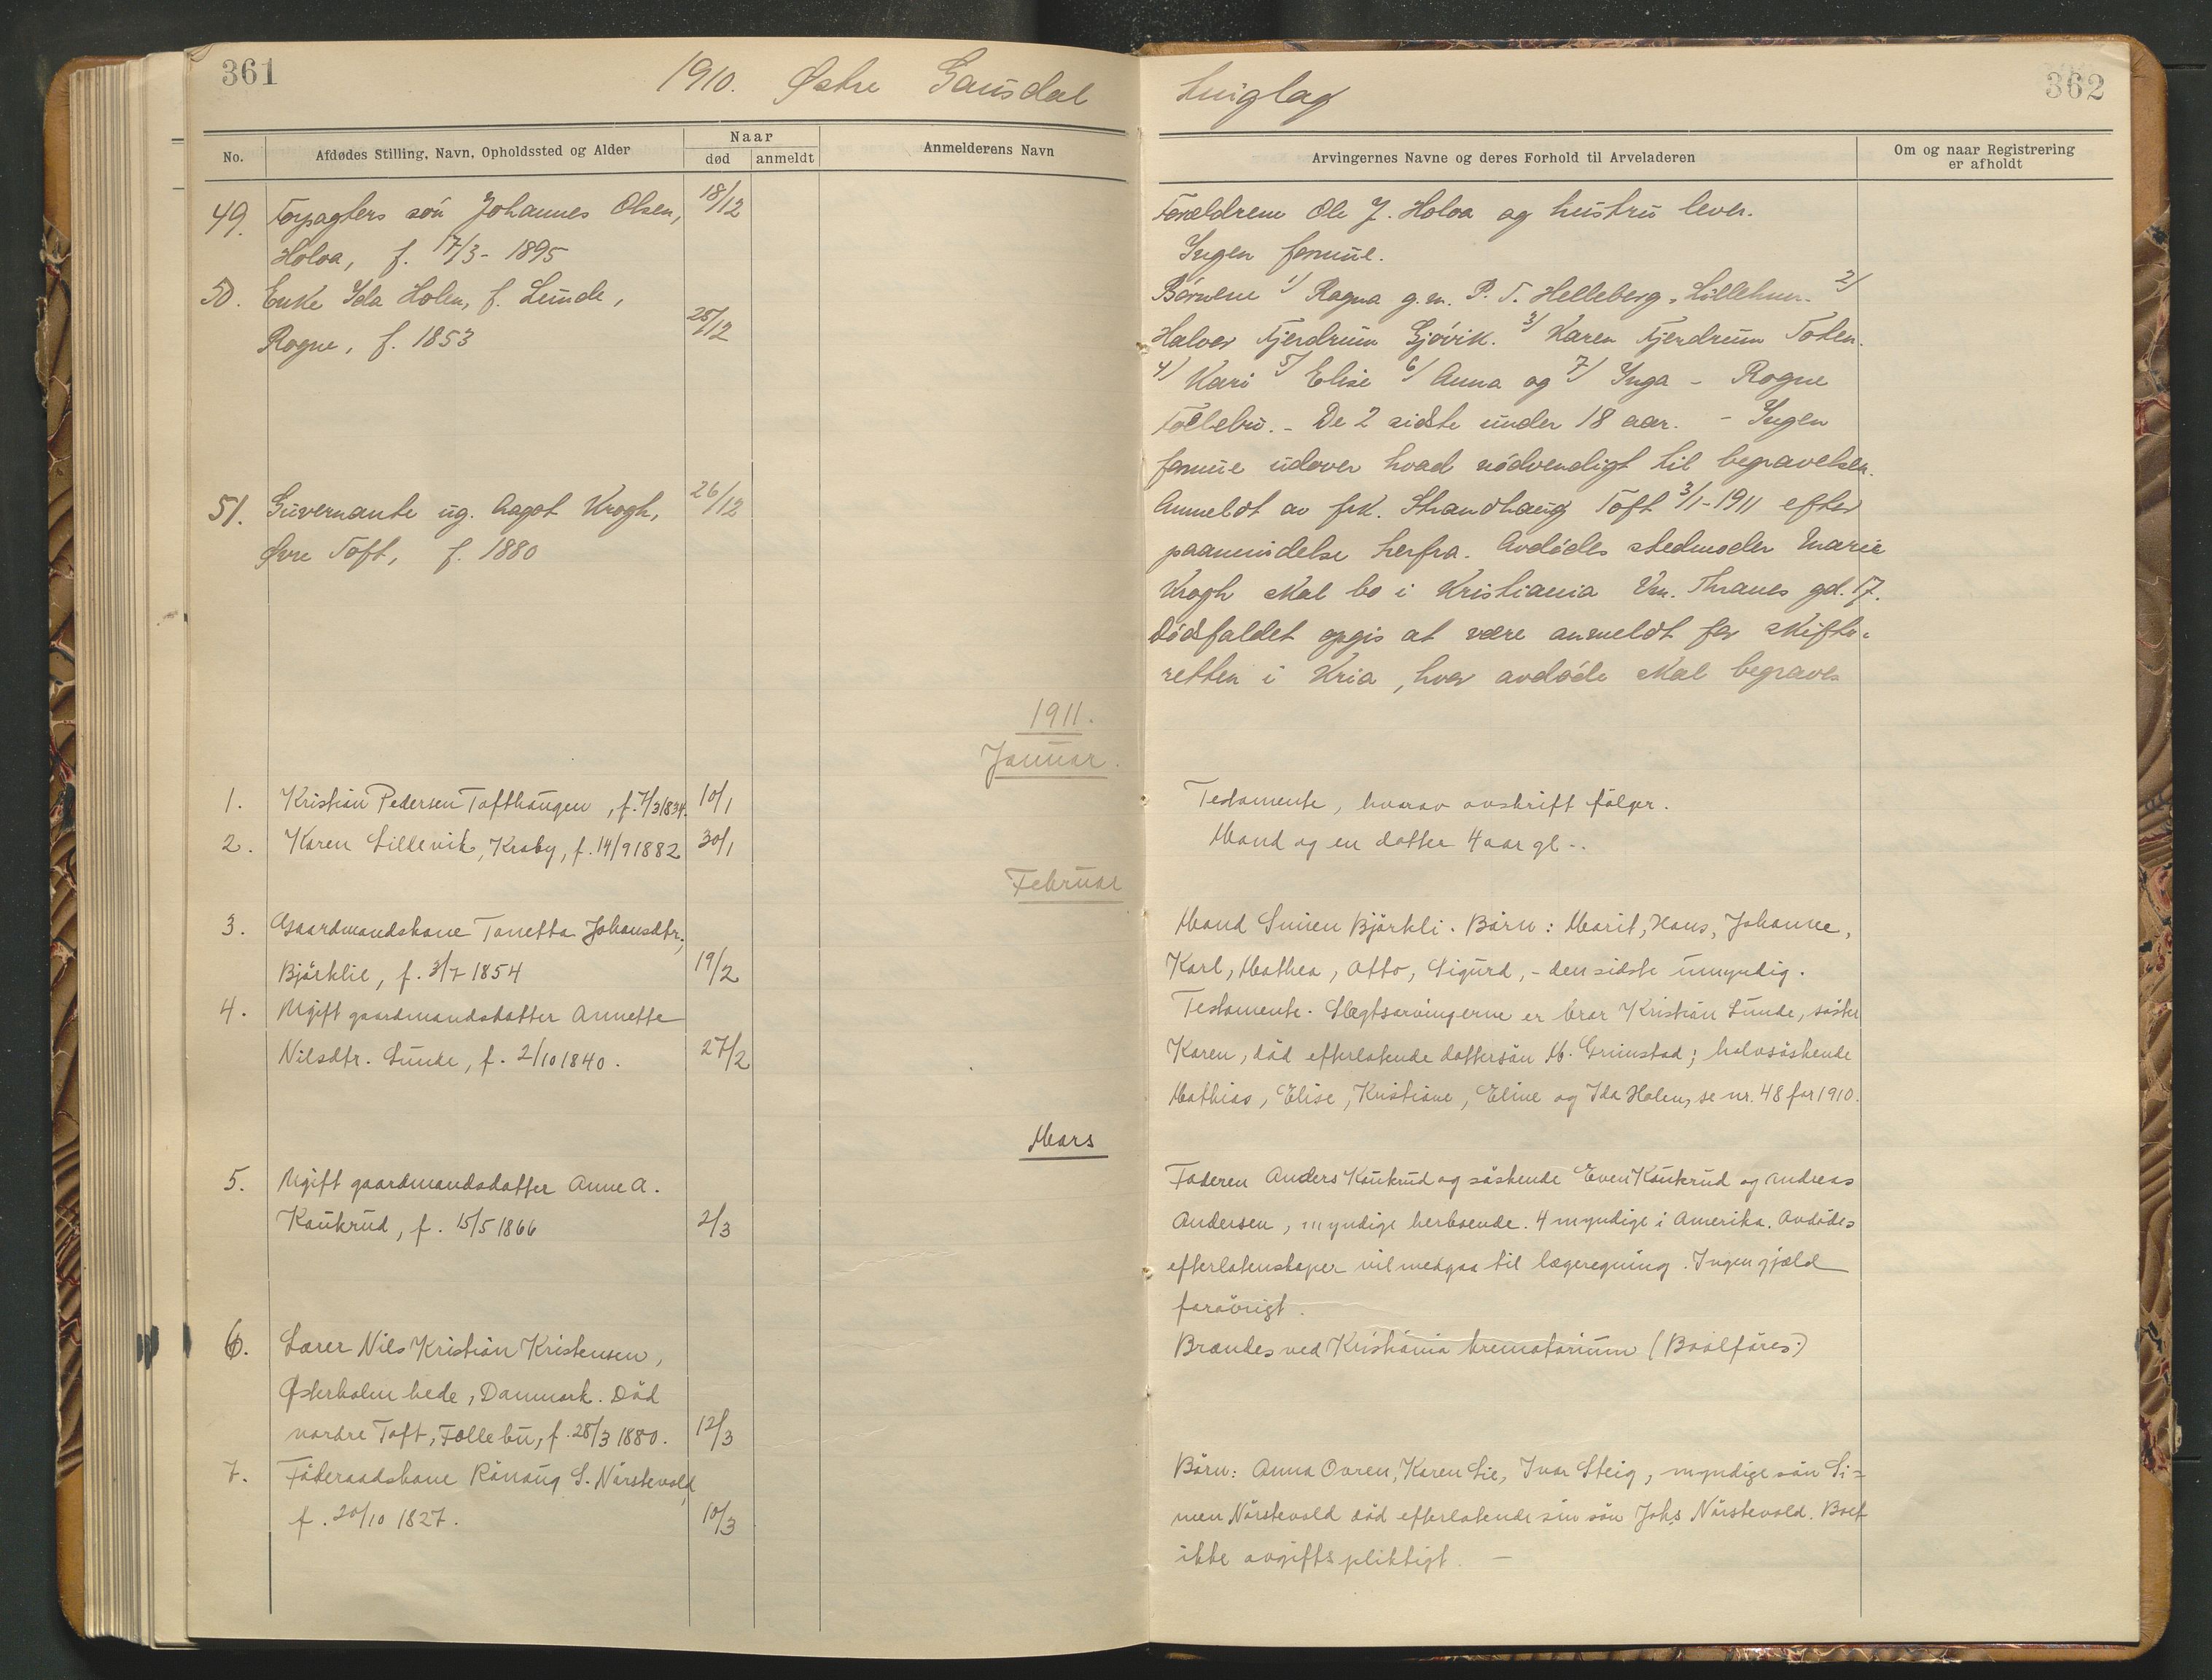 361
1910. Østre Gausdal
No.
Afdødes Stilling, Navn, Opholdssted og Alder
Naar
død
anmeldt
Anmelderens Navn
49. Forpagters søn Johannes Olsen, 18/12
Holoa, f. 17/3 - 1895
50. Enke Ida Holen, f. Lunde,
Rogne, f. 1853 25/12
51. Guvernante ug. Aagot Krogh, 26/12
Øvre Toft, f. 1880
1911.
Januar.
1. Kristian Pedersen Tofthaugen, f. 7/3 1834. 10/1
2. Karen Lillevik, Kraby, f. 14/9 1882 30/1
Februar
3. Gaardmandskone Tonetta Johansdtr.,
Bjørklie, f. 3/7 1854 19/2
4. Ugift gaardmandsdatter Annette
Nilsdtr. Lunde, f. 2/10 1840. 27/2
Mars
5. Ugift gaardmandsdatter Anne A.
Kaukrud, f. 15/5 1866 2/3
6. Lærer Nils Kristian Kristensen,
Østerholm hede, Danmark. Död
nordre Toft, Follebu, f. 28/3 1880. 12/3
7. Föderaadskone Rönaug S. Nörstevold,
f. 20/10 1827. 10/3
362
Arvingernes Navne og deres Forhold til Arveladeren
Om og naar Registrering
er afholdt
Forældrene Ole J. Holoa og hustru lever.
Ingen formue.
Børnene 1/ Ragna g.m. P. T. Helleberg, Lillehmr. 2/
Halvor Fjerdrum Gjøvik. 3/ Karen Fjerdrum Toten.
4/ Kari 5/ Elise 6/ Anna og 7/ Inga - Rogne
Follebu. - De 2 sidste under 18 aar. - Ingen
formue udover hvad nødvendigt til begravelsen.
Anmeldt av frk. Strandhaug Toft 3/1 - 1911 efter
paamindelse herfra. Avdødes stedmoder Marie
Krogh skal bo i Kristiania Vm. Thranes gd. 17.
Dødsfaldet opgis at være anmeldt for skifte-
retten i Kria, hvor avdøde skal begraves
Testamente, hvorav avskrift følger.
Mand og en datter 4 aar gl..
Mand Simen Björkli. Börn: Marit, Hans, Johanne,
Karl, Mathea, Otto, Sigurd, - den sidste umyndig.
Testamente. Slegtsarvingerne er bror Kristian Lunde, söster
Karen, död efterlatende dattersön M. Grimstad; halvsöskende
Mathias, Elise, Kristiane, Eline og Ida Holen, se nr. 48 for 1910.
Faderen Anders Kaukrud og söskende Even Kaukrud og Andreas
Andersen, myndige herboende. 4 myndige i Amerika. Avdödes
efterlatenskaper vil medgaa til lægeregning. Ingen gjæld
forövrigt.
Brændes ved Kristiania krematorium (Baalföres)
Börn: Anna Ovren, Karen Lie, Ivar Steig, myndige sön Si=
men Nörstevold död efterlatende sin sön Johs Nörstevold. Boet
ikke avgiftspliktigt. -